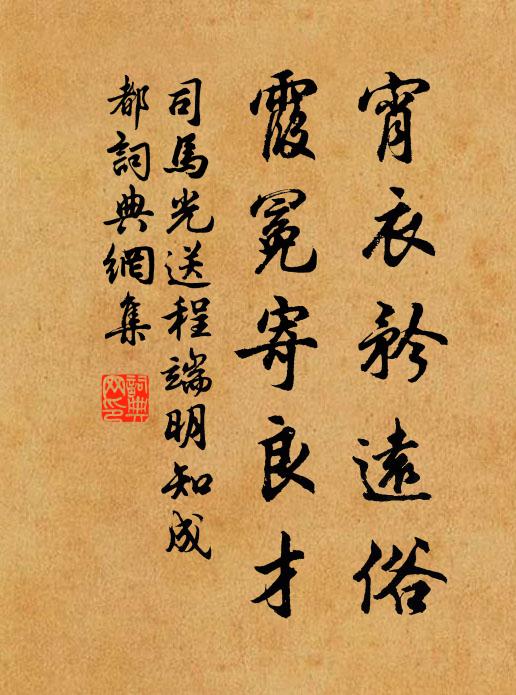 宵衣矜遠俗
霞冕寄良才
司馬光送程端明知成
都詞典網集
詞典
网印